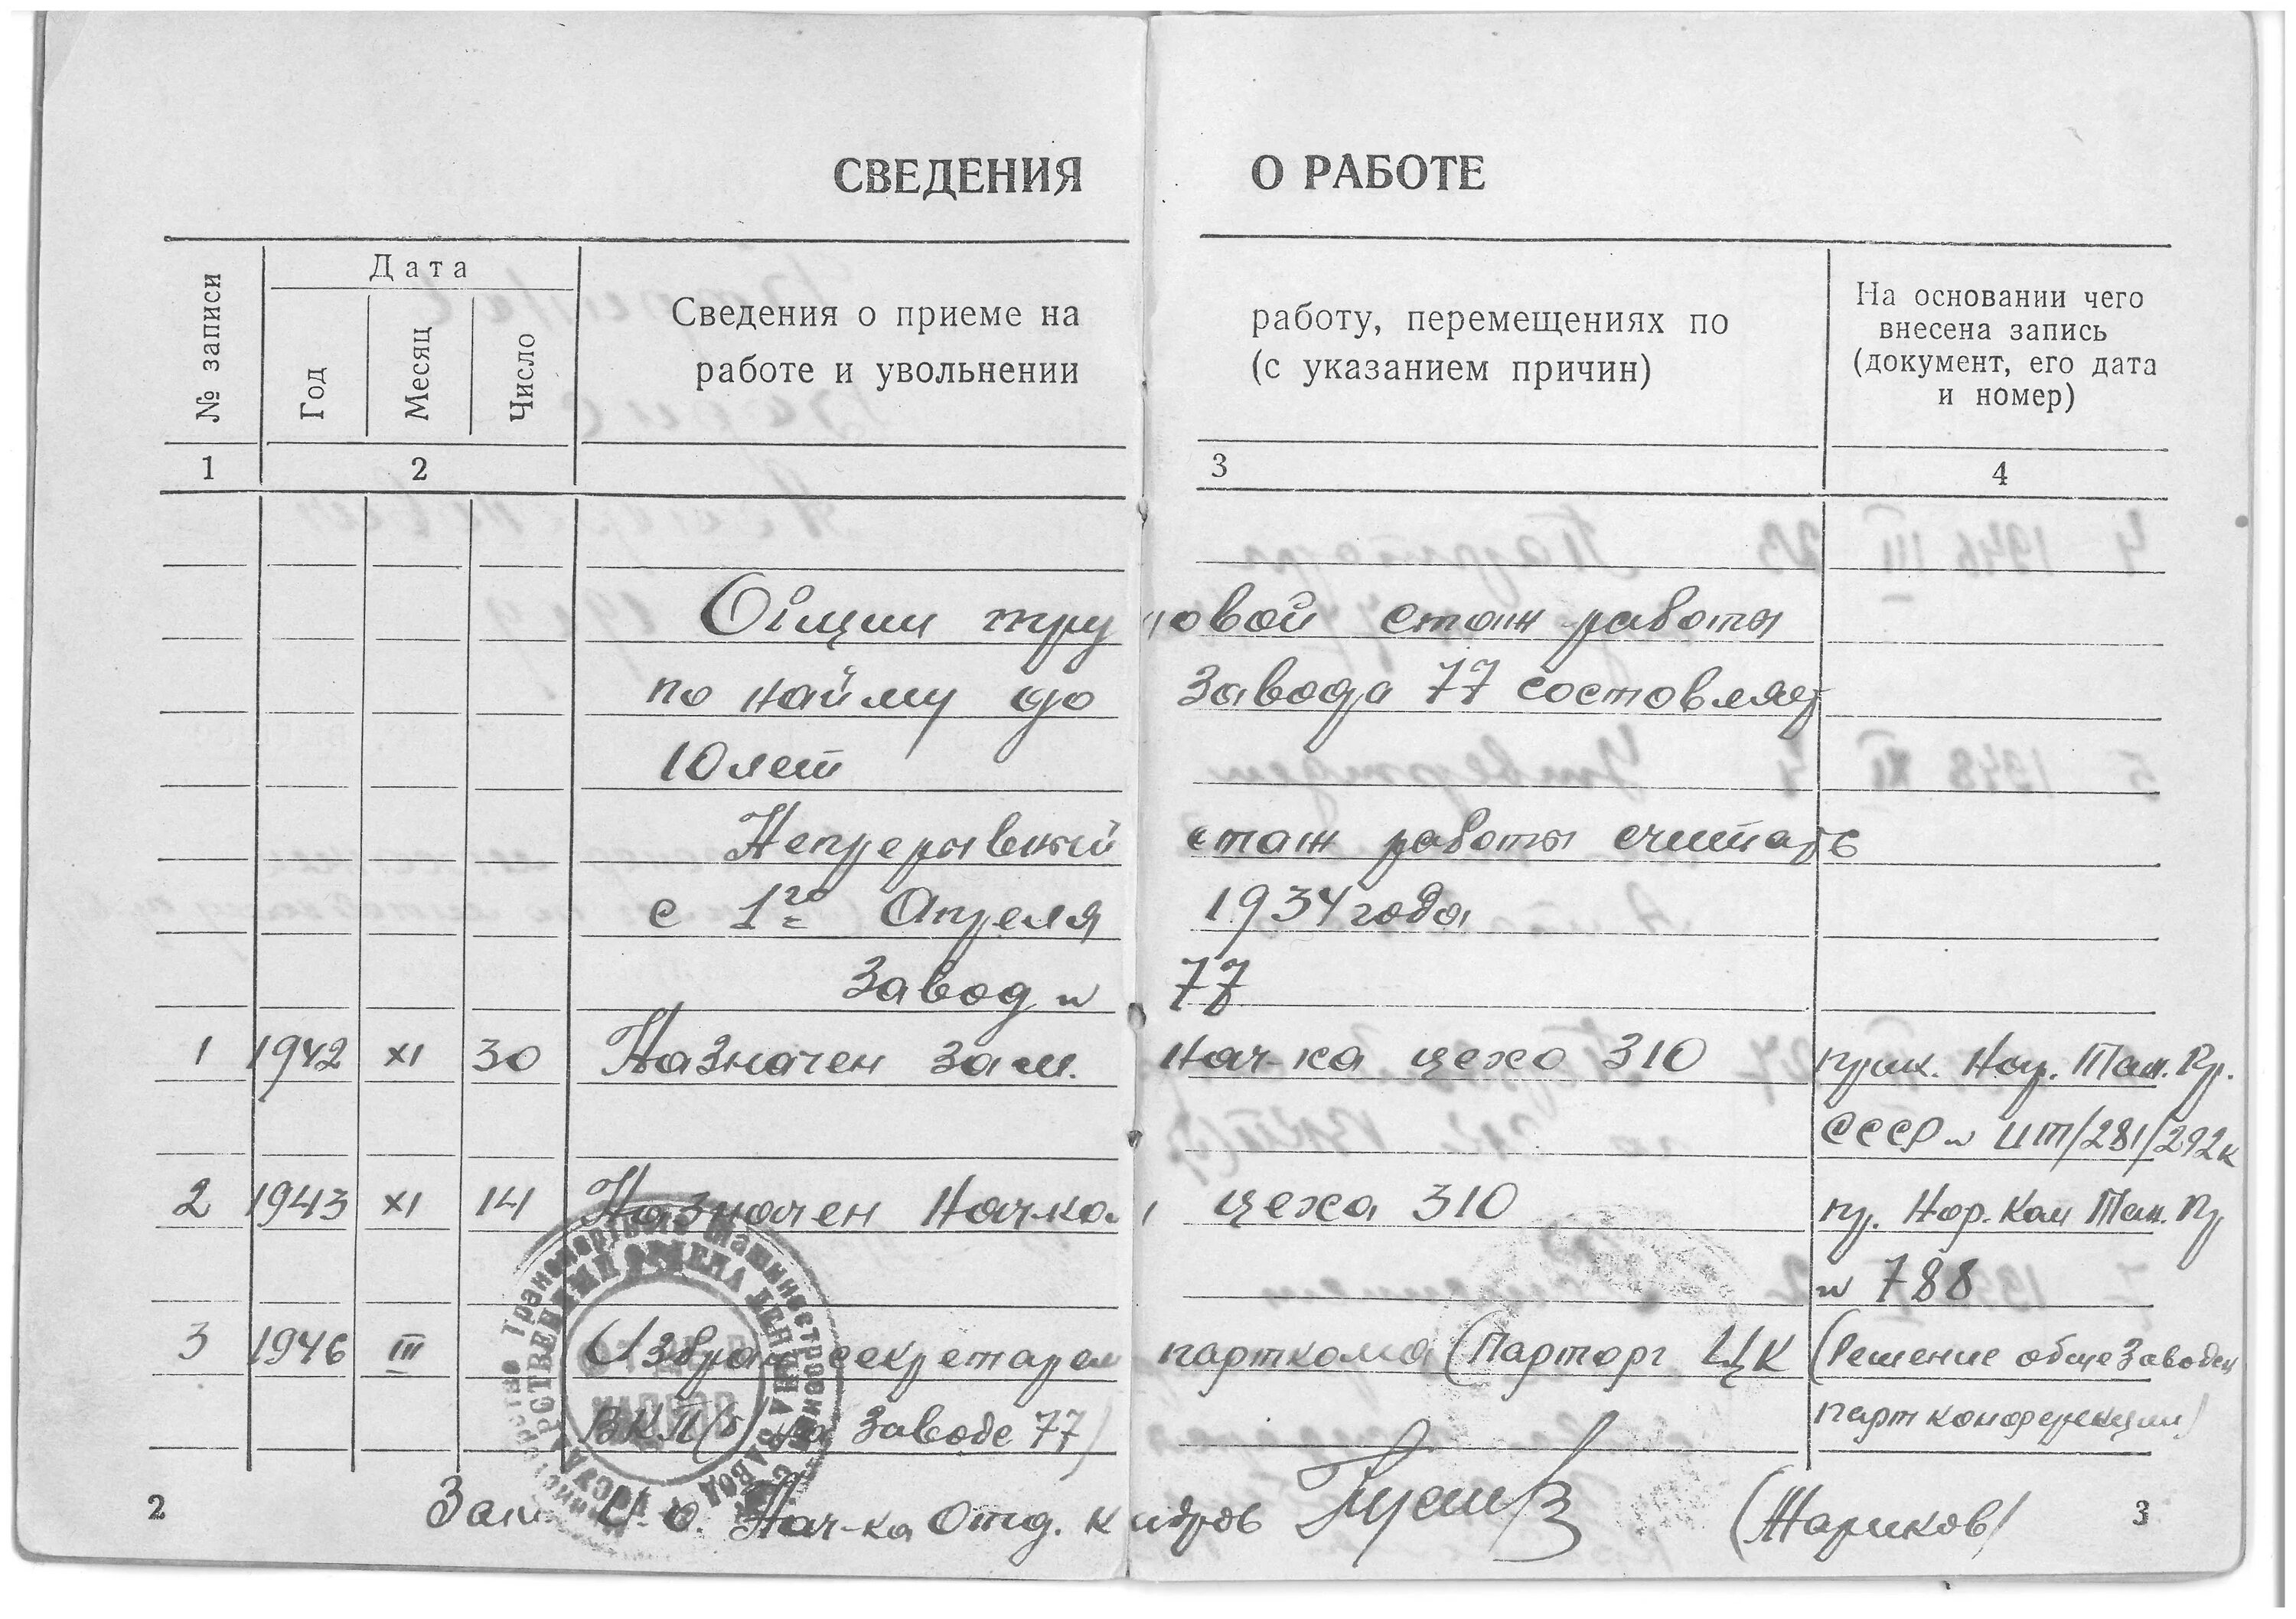 СВЕДЕНИЯ О РАБОТЕ
№ записи
Дата
Год
Месяц
Число
Сведения о приеме на работу, перемещениях по
работе и увольнении (с указанием причин)
На основании чего
внесена запись
(документ, его дата
и номер)
1 2 3 4
Общий трудовой стаж работы
по найму до завода 77 составляет
10 лет
Непрерывный стаж работы считать
с 1го Апреля 1934 года
Завод № 77
1 1942 XI 30 Назначен зам. нач-ка цеха 310 прик. Нар. Тан. Пр.
СССР № ИТ/281/292к
2 1943 XI 14 Назначен Нач-ком цеха 310 пр. Нар. Ком Тан. Пр.
№ 788
3 1946 III Избран секретарем парткома (Парторг ЦК (Решение общезаводск
ВКП(б) на заводе 77) парт конференции)
Зам. И.о. Нач-ка Отд. кадров (Жариков)
2 3